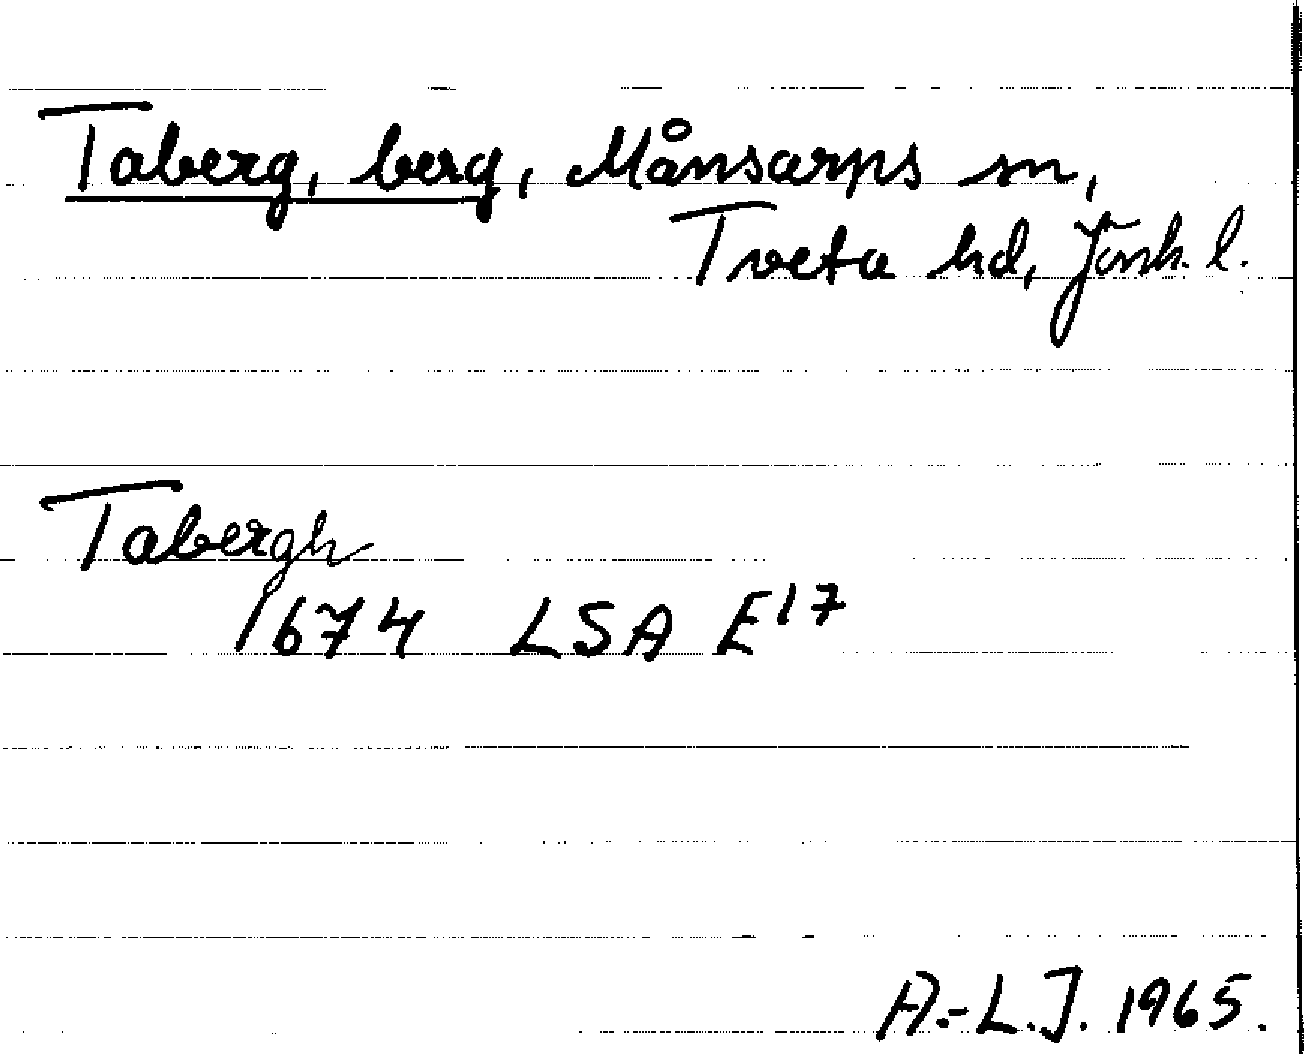 Taberg, berg, Månsarps sn,
Tveta hd, Jönk. l.
Tabergh
1674 LSA E17
A.-L.J. 1965.